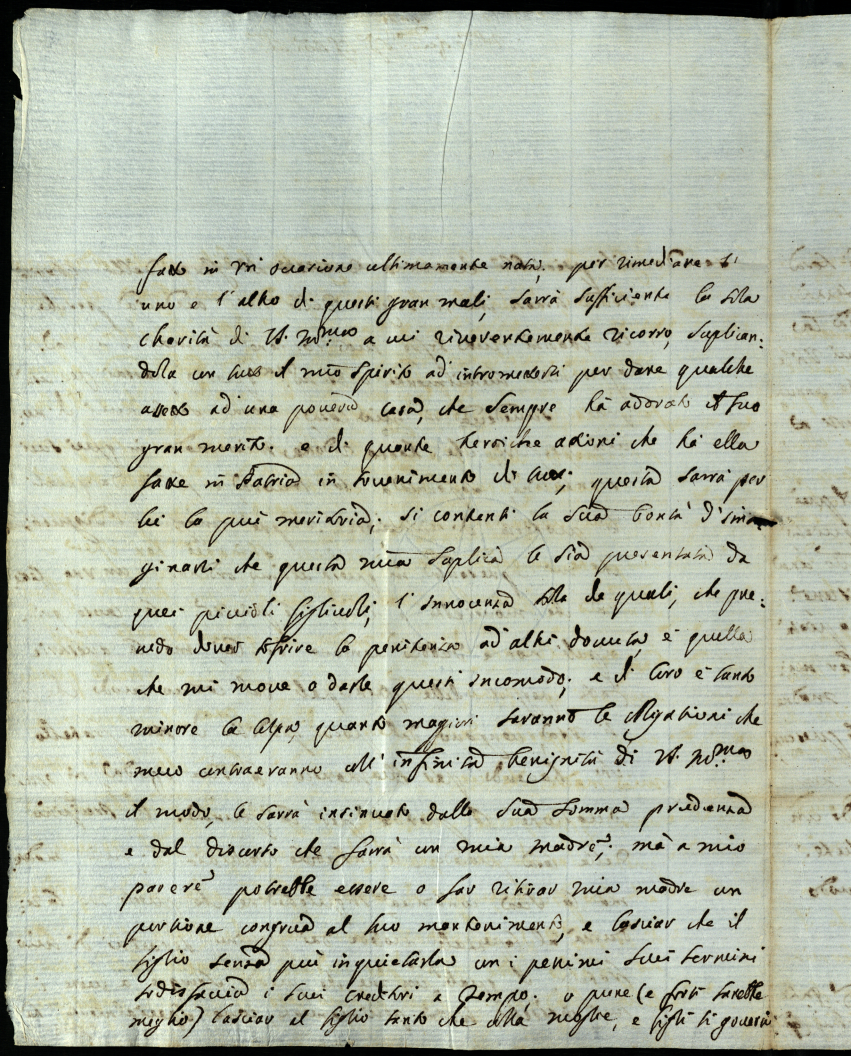 fatto in un occasione ultimamente nata; per rimediare l'
uno e l'altro di questi gran mali, sarrà sufficiente la sola
charità di V. S. Ill.ma a cui riverentemente ricorro, suplican:
dola con tutto il mio spirito ad intromettersi per dare qualche
assetto ad una povera casa, che sempre hà adorato il suo
gran merito. e di quante heroiche attioni che hà ella
fatte in Patria in sovenimento di tutti; questa sarrà per
lei la più meritoria; si contenti la sua bontà d'ima:
ginarsi che questa mia suplica le sia presentata da
quei piccioli figlicoli, l'innocenza sola de quali, che pre:
vedo dover soffrire la penitenza ad altri dovuta, è quella
che mi move a darle questi incomodo; e di loro è tanto
minore la colpa, quanto magiori saranno le obligationi che
meco contraeranno all'infinita benignità di V. S. Ill.ma
il modo, le sarrà insinuato dalla sua somma prudenza
e dal discorso che farrà con mia madre; mà a mio
parere potrebbe essere o far ritirar mia madre con
portione congrua al suo mantenimento, e lasciar che il
figlio senza più inquietarla con i penini suoi termini
sodisfaccia i suoi creditori a tempo; o pure (e forsi sarebbe
meglio) lasciar il figlio tanto che alla moglie, e figli si governi